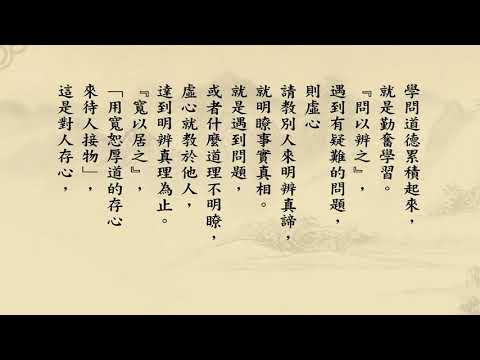 學問道德累積起來，
就是勤奮學習。
『問以辨之』，
遇到有疑難的問題，
則虛心
請教別人來明辨真諦，
就明瞭事實真相。
就是遇到問題，
或者什麼道理不明瞭，
虛心就教於他人，
達到明辨真理為止。
『寬以居之』，
「用寬恕厚道的存心
來待人接物」，
這是對人存心，